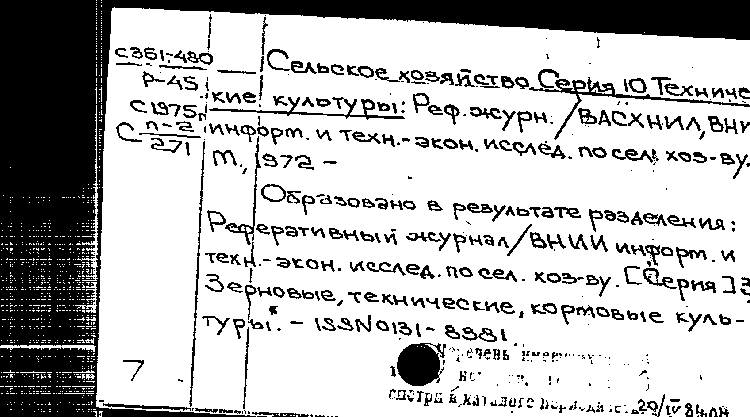 С351-480
Р-45
С1975г
С п-2
271
Сельское хозяйство. Серия 10, Техничес
кие культуры: Реф. журн. / ВАСХНИЛ, ВНИ
информ. и техн.-экон. исслед. по сел. хоз-ву.
М., 1972 –
Образовано в результате разделения:
Реферативный журнал / ВНИИ информ. и
техн.-экон. исслед. по сел. хоз-ву. [Серия] 3
Зерновые, технические, кормовые куль-
туры. – ISSN 0131-8381
7
Перечень
смотри в каталоге 29/IV 84